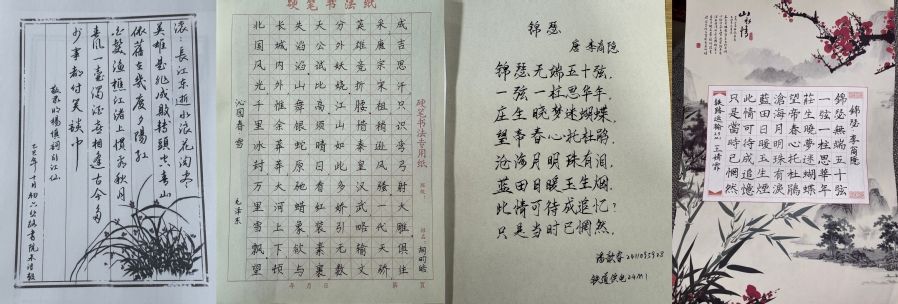 滚滚長江东逝水浪花淘尽
英雄是非成败转頭空青山
依舊在幾度夕陽红
白髮漁樵江渚上惯看秋月
春風一壶濁酒喜相逢古今多
少事都付笑談中
敬录明楊慎词临江仙
乙巳年十月初六
硬笔书法纸
沁园春雪
毛泽东
北国风光千里冰封万里雪飘望
长城内外惟余莽莽大河上下顿
失滔滔山舞银蛇原驰蜡象欲与
天公试比高须晴日看红装素裹
分外妖娆江山如此多娇引无数
英雄竞折腰惜秦皇汉武略输文
采唐宗宋祖稍逊风骚一代天骄
成吉思汗只识弯弓射大雕俱往
硬笔书法专用纸
年 月 日
第 页
锦瑟
唐 李商隐
锦瑟无端五十弦，
一弦一柱思华年。
庄生晓梦迷蝴蝶，
望帝春心托杜鹃。
沧海月明珠有泪，
蓝田日暖玉生烟。
此情可待成追忆？
只是当时已惘然。
铁道供电24M1
山水情
錦瑟 李商隱
錦瑟無端五十弦
一弦一柱思華年
莊生曉夢迷蝴蝶
望帝春心托杜鵑
滄海月明珠有淚
藍田日暖玉生煙
此情可待成追憶
只是當時已惘然